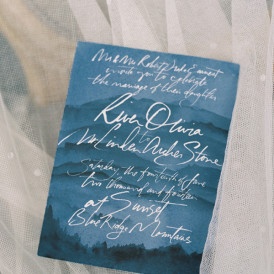 Mr & Mrs Robert
invite you to celebrate
the marriage of their daughter
River Olivia
to
Linden Archer Stone
Saturday, the fourteenth of June
two thousand and fourteen
at Sunset
Blue Ridge Mountains